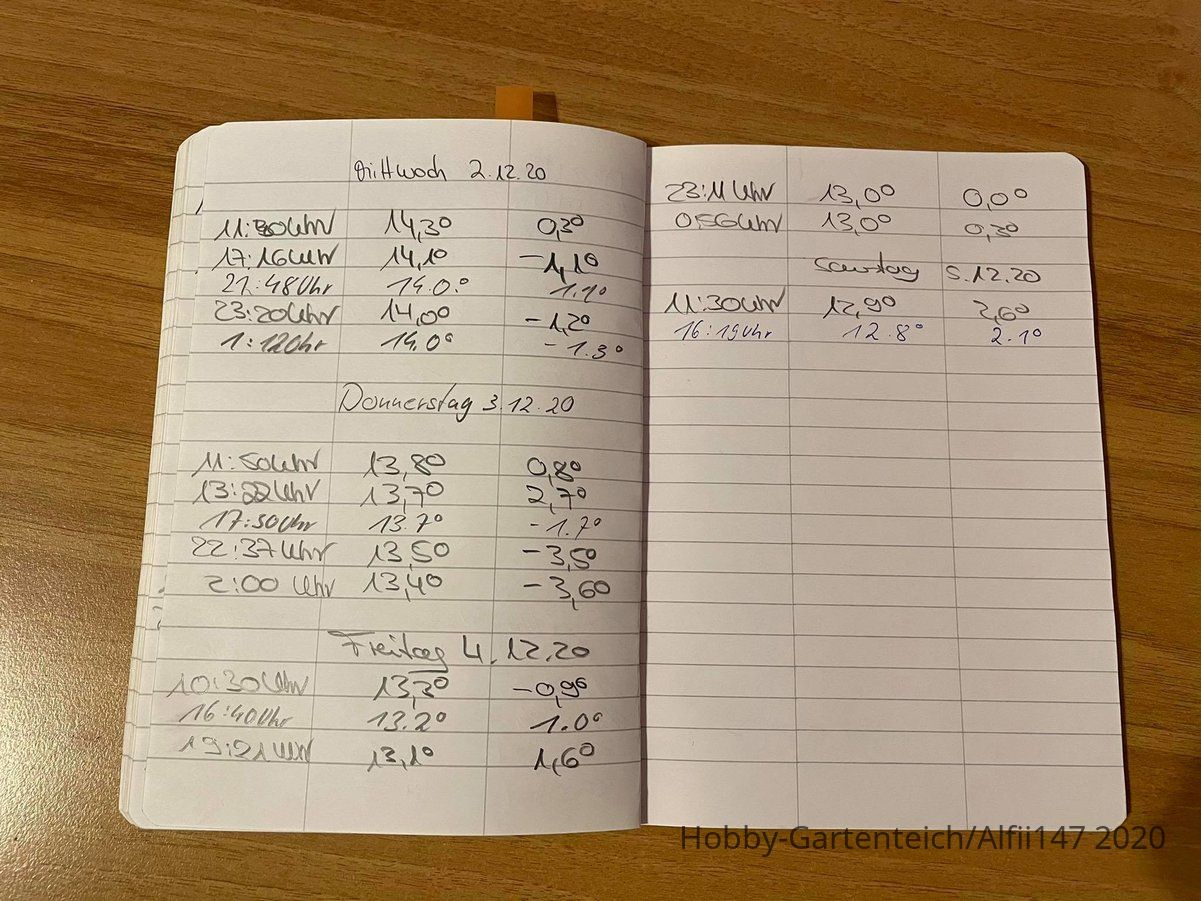 Mittwoch 2.12.20
11:30Uhr 14,3° 0,3°
17:16Uhr 14,1° -1,1°
21:48Uhr 14.0.° 1.1°
23:20Uhr 14,0° -1,2°
1:12Uhr 14.0° -1.3°
Donnerstag 3.12.20
11:50Uhr 13,8° 0,8°
13:22Uhr 13,7° 2,7°
17:50Uhr 13.7° -1.7°
22:37Uhr 13,5° -3,5°
2:00 Uhr 13,4° -3,6°
Freitag 4.12.20
10:30Uhr 13,3° -0,9°
16:40Uhr 13.2° 1.0°
19:21Uhr 13,1° 1,6°
23:11Uhr 13,0° 0,0°
0:56Uhr 13,0° 0,3°
Samstag 5.12.20
11:30Uhr 12,9° 2,6°
16:19Uhr 12.8° 2.1°
Hobby-Gartenteich/Alfii147 2020